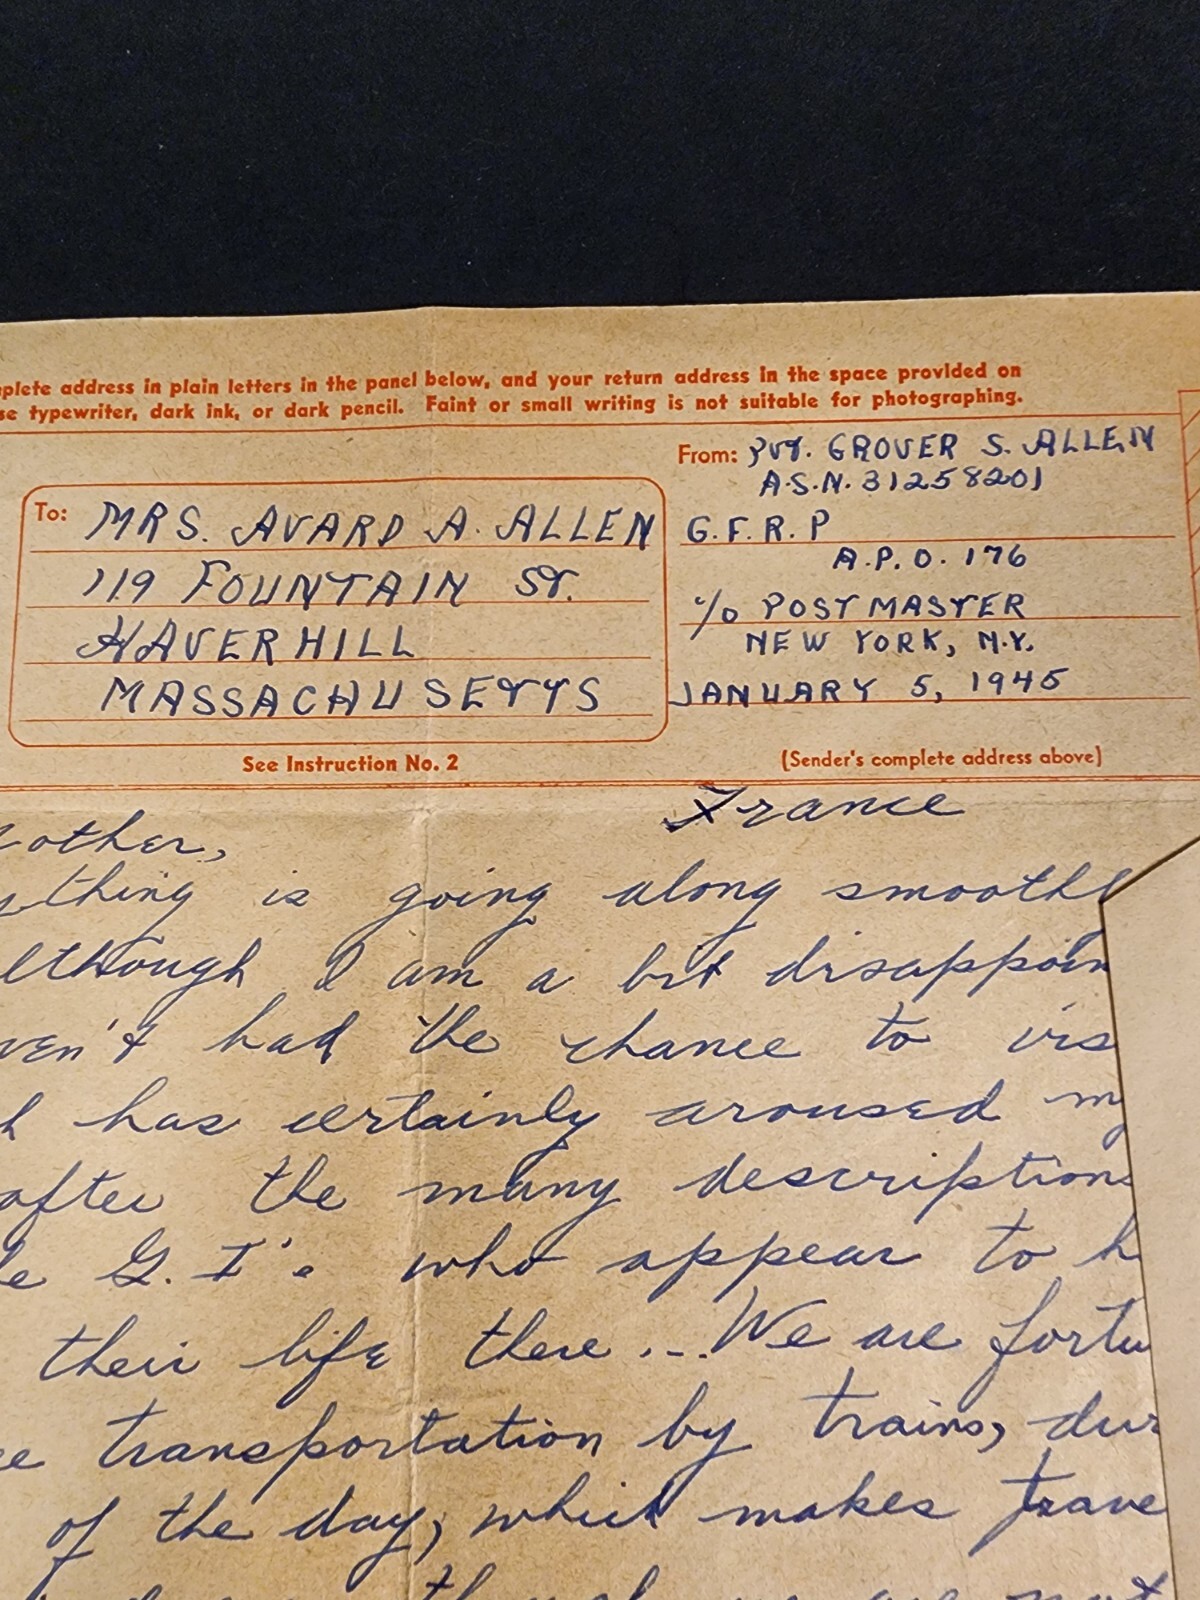 plete address in plain letters in the panel below, and your return address in the space provided on
se typewriter, dark ink, or dark pencil. Faint or small writing is not suitable for photographing.
To: MRS. AVARD A. ALLEN
119 FOUNTAIN ST.
HAVERHILL
MASSACHUSETTS
See Instruction No. 2
From: Pvt. GROVER S. ALLEN
A.S.N. 31258201
G.F.R.P
A.P.O. 176
c/o POSTMASTER
NEW YORK, N.Y.
JANUARY 5, 1945
(Sender's complete address above)
France
other,
ything is going along smoothl
lthough I am a bit disappoin
ven't had the chance to vis
h has certainly aroused my
after the many descriptions
le G.I's who appear to h
their life there... We are fortu
e transportation by trains, dur
of the day, which makes trave
though we are not